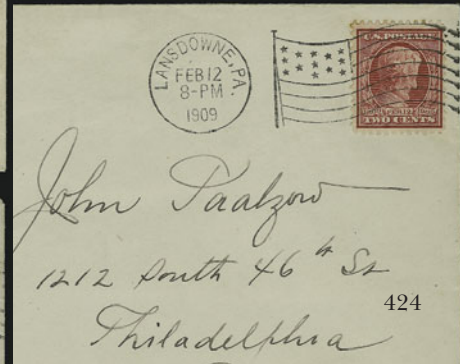 LANSDOWNE, PA.
FEB 12
8-PM
1909
U.S. POSTAGE
TWO CENTS
John Paalzow
1212 South 46th St
424
Philadelphia